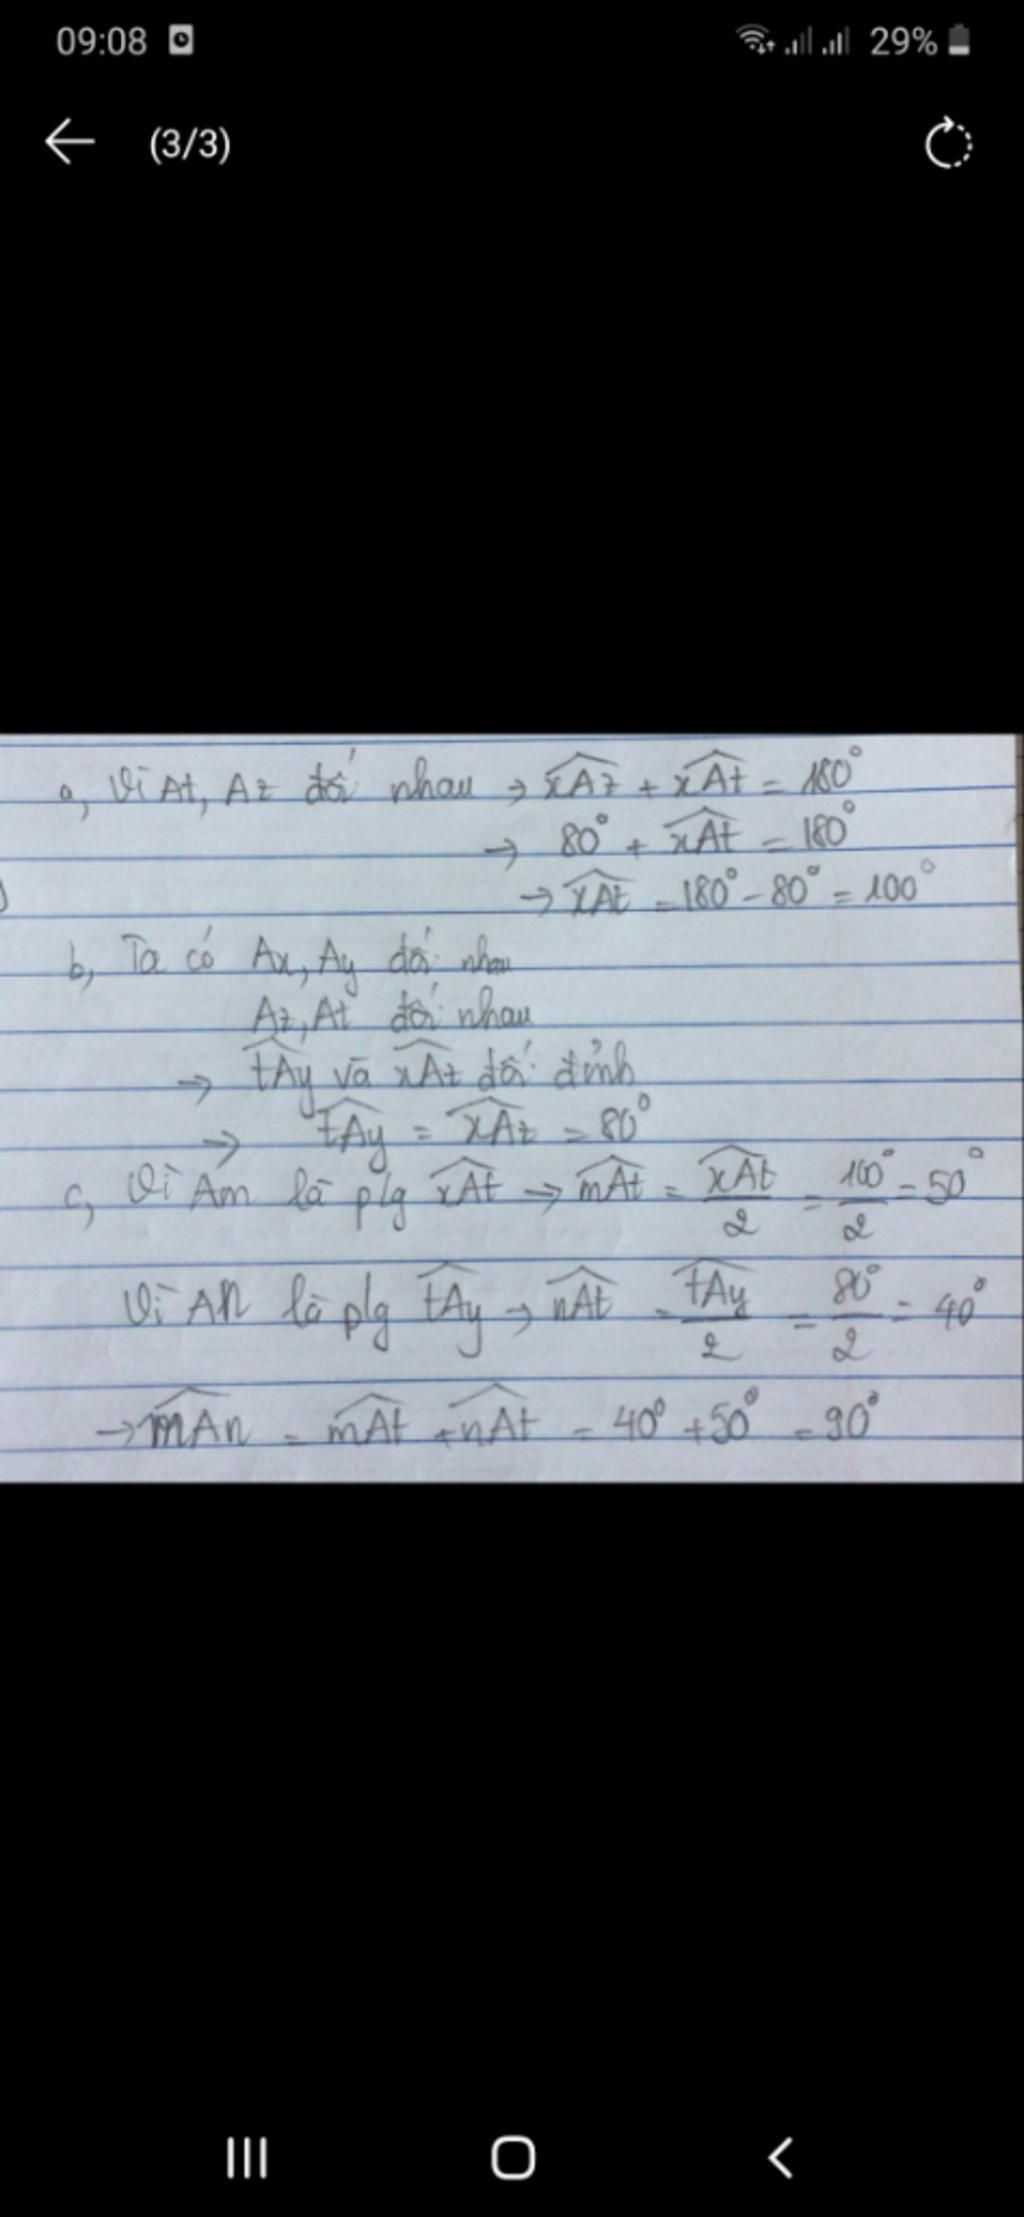 09:08 29%
(3/3)
a, Vì At, Az đối nhau → xAz + xAt = 180°
→ 80° + xAt = 180°
→ xAt = 180° - 80° = 100°
b, Ta có Ax, Ay đối nhau
Az, At đối nhau
→ tAy và xAz đối đỉnh
→ tAy = xAz = 80°
c, Vì Am là p/g xAt → mAt = xAt/2 = 100°/2 = 50°
Vì An là p/g tAy → nAt = tAy/2 = 80°/2 = 40°
→ mAn = mAt + nAt = 40° + 50° = 90°